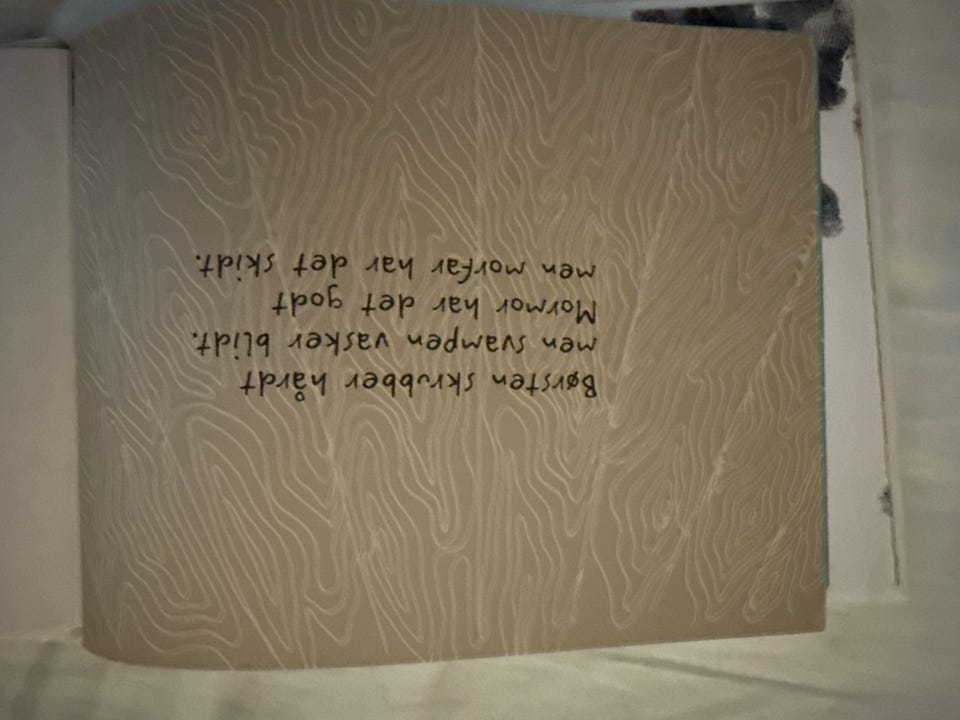 Børsten skrubber hårdt
men svampen vasker blidt.
Mormor har det godt
men morfar har det skidt.